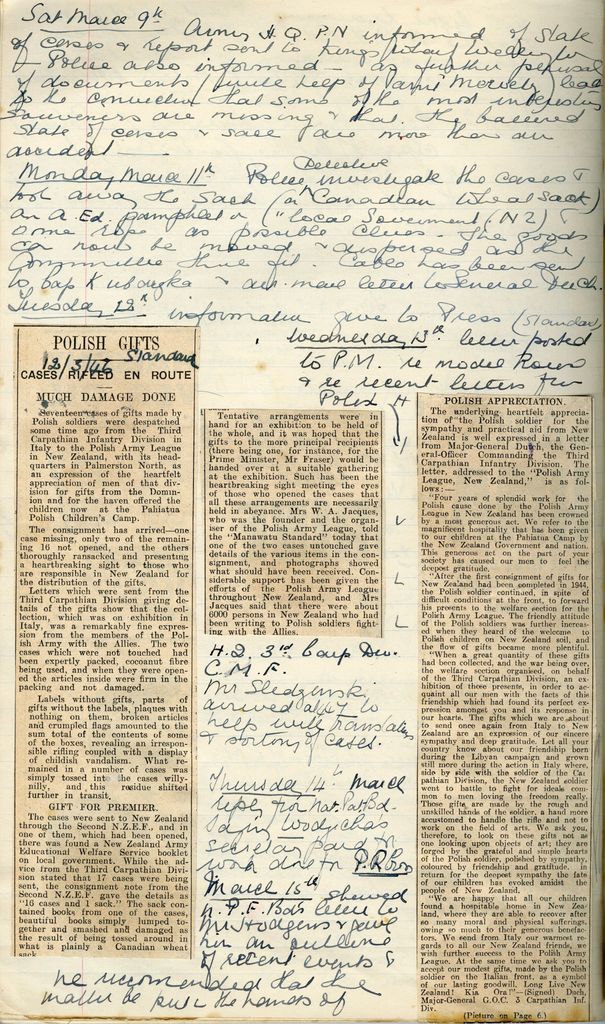 Sat March 9th Army H.Q. P.N informed of state
of cases & report sent to Kings Wharf Wellington
Police also informed - as further perusal
of documents (with help of ) leads
to the conviction that some of the most interesting
souvenirs are missing & that the battered
state of cases & sack are more than an
accident
Monday March 11th Detective Police investigate the cases &
took away the sack (a Canadian wheat sack)
an A.Ed. pamphlet on ("local Government (NZ) &
some rope as possible clues. The goods
can now be moved & dispersed as the
Committee think fit. Cable has been sent
to Cap & air mail letter to General Duch.
Tuesday 12th information give to Press (Standard)
Wednesday 13th letter posted
to P.M. re model
& re recent letters
POLISH GIFTS
12/3/ Standard
CASES RIFLED EN ROUTE
MUCH DAMAGE DONE
Seventeen cases of gifts made by
Polish soldiers were despatched
some time ago from the Third
Carpathian Infantry Division in
Italy to the Polish Army League
in New Zealand, with its head-
quarters in Palmerston North, as
an expression of the heartfelt
appreciation of men of that di-
vision for gifts from the Domin-
ion and for the haven offered the
children now at the Pahiatua
Polish Children's Camp.
The consignment has arrived—one
case missing, only two of the remain-
ing 16 not opened, and the others
thoroughly ransacked and presenting
a heartbreaking sight to those who
are responsible in New Zealand for
the distribution of the gifts.
Letters which were sent from the
Third Carpathian Division giving de-
tails of the gifts show that the col-
lection, which was on exhibition in
Italy, was a remarkably fine expres-
sion from the members of the Pol-
ish Army with the Allies. The two
cases which were not touched had
been expertly packed, cocoanut fibre
being used, and when they were open-
ed the articles inside were firm in the
packing and not damaged.
Labels without gifts, parts of
gifts without the labels, plaques with
nothing on them, broken articles
and crumpled flags amounted to the
sum total of the contents of some
of the boxes, revealing an irrespon-
sible rifling coupled with a display
of childish vandalism. What re-
mained in a number of cases was
simply tossed into the cases willy-
nilly, and this residue shifted
further in transit.
GIFT FOR PREMIER.
The cases were sent to New Zealand
through the Second N.Z.E.F., and in
one of them, which had been opened,
there was found a New Zealand Army
Educational Welfare Service booklet
on local government. While the ad-
vice from the Third Carpathian Divi-
sion stated that 17 cases were being
sent, the consignment note from the
Second N.Z.E.F. gave the details as
"16 cases and 1 sack." The sack con-
tained books from one of the cases,
beautiful books simply lumped to-
gether and smashed and damaged as
the result of being tossed around in
what is plainly a Canadian wheat
sack.
Tentative arrangements were in
hand for an exhibition to be held of
the whole, and it was hoped that the
gifts to the more principal recipients
(there being one, for instance, for the
Prime Minister, Mr Fraser) would be
handed over at a suitable gathering
at the exhibition. Such has been the
heartbreaking sight meeting the eyes
of those who opened the cases that
all these arrangements are necessarily
held in abeyance. Mrs W. A. Jacques,
who was the founder and the organ-
iser of the Polish Army League, told
the "Manawatu Standard" today that
one of the two cases untouched gave
details of the various items in the con-
signment, and photographs showed
what should have been received. Con-
siderable support has been given the
efforts of the Polish Army League
throughout New Zealand, and Mrs
Jacques said that there were about
6000 persons in New Zealand who had
been writing to Polish soldiers fight-
ing with the Allies.
H.Q. 3rd Carp Div.
C.M.F.
Mr Sledzinski
arrived to
help with translation
& sorting of cases.
Thursday 14th March
for Nat. Pat. Bd.
saying
secretary for
March 15th showed
N.P.F. Bds letter to
Mr Hodgens & gave
him an outline
of recent events &
he recommended that the
matter be put the hands of
POLISH APPRECIATION.
The underlying heartfelt apprecia-
tion of the Polish soldier for the
sympathy and practical aid from New
Zealand is well expressed in a letter
from Major-General Duch, the Gen-
eral-Officer Commanding the Third
Carpathian Infantry Division. The
letter, addressed to the "Polish Army
League, New Zealand," is as fol-
lows:—
"Four years of splendid work for the
Polish cause done by the Polish Army
League in New Zealand has been crowned
by a most generous act. We refer to the
magnificent hospitality that has been given
to our children at the Pahiatua Camp by
the New Zealand Government and nation.
This generous act on the part of your
society has caused our men to feel the
deepest gratitude.
"After the first consignment of gifts for
New Zealand had been completed in 1944,
the Polish soldier continued, in spite of
difficult conditions at the front, to forward
his presents to the welfare section for the
Polish Army League. The friendly attitude
of the Polish soldiers was further increas-
ed when they heard of the welcome to
Polish children on New Zealand soil, and
the flow of gifts became more plentiful.
"When a great quantity of these gifts
had been collected, and the war being over,
the welfare section organised, on behalf
of the Third Carpathian Division, an ex-
hibition of those presents, in order to ac-
quaint all our men with the facts of this
friendship which had found its perfect ex-
pression amongst you and its response in
our hearts. The gifts which we are about
to send once again from Italy to New
Zealand are an expression of our sincere
sympathy and deep gratitude. Let all your
country know about our friendship born
during the Libyan campaign and grown
still more during the action in Italy where,
side by side with the soldier of the Car-
pathian Division, the New Zealand soldier
went to battle to fight for ideals com-
mon to men loving the freedom really.
Those gifts are made by the rough and
unskilled hands of the soldier, a hand more
accustomed to handle the rifle and not to
work on the field of arts. We ask you,
therefore, to look on these gifts not as
one looking upon objects of art; they are
forged by the grateful and simple hearts
of the Polish soldier, polished by sympathy,
coloured by friendship and gratitude, in
return for the deepest sympathy the fate
of our children has evoked amidst the
people of New Zealand.
"We are happy that all our children
found a hospitable home in New Zea-
land, where they are able to recover after
so many moral and physical sufferings,
owing so much to their generous benefac-
tors. We send from Italy our warmest re-
gards to all our New Zealand friends, we
wish further success to the Polish Army
League. At the same time we ask you to
accept our modest gifts, made by the Polish
soldier on the Italian front, as a symbol
of our lasting goodwill. Long Live New
Zealand! Kia Ora!"—(Signed) Duch,
Major-General G.O.C. 3 Carpathian Inf.
Div.
(Picture on Page 6.)